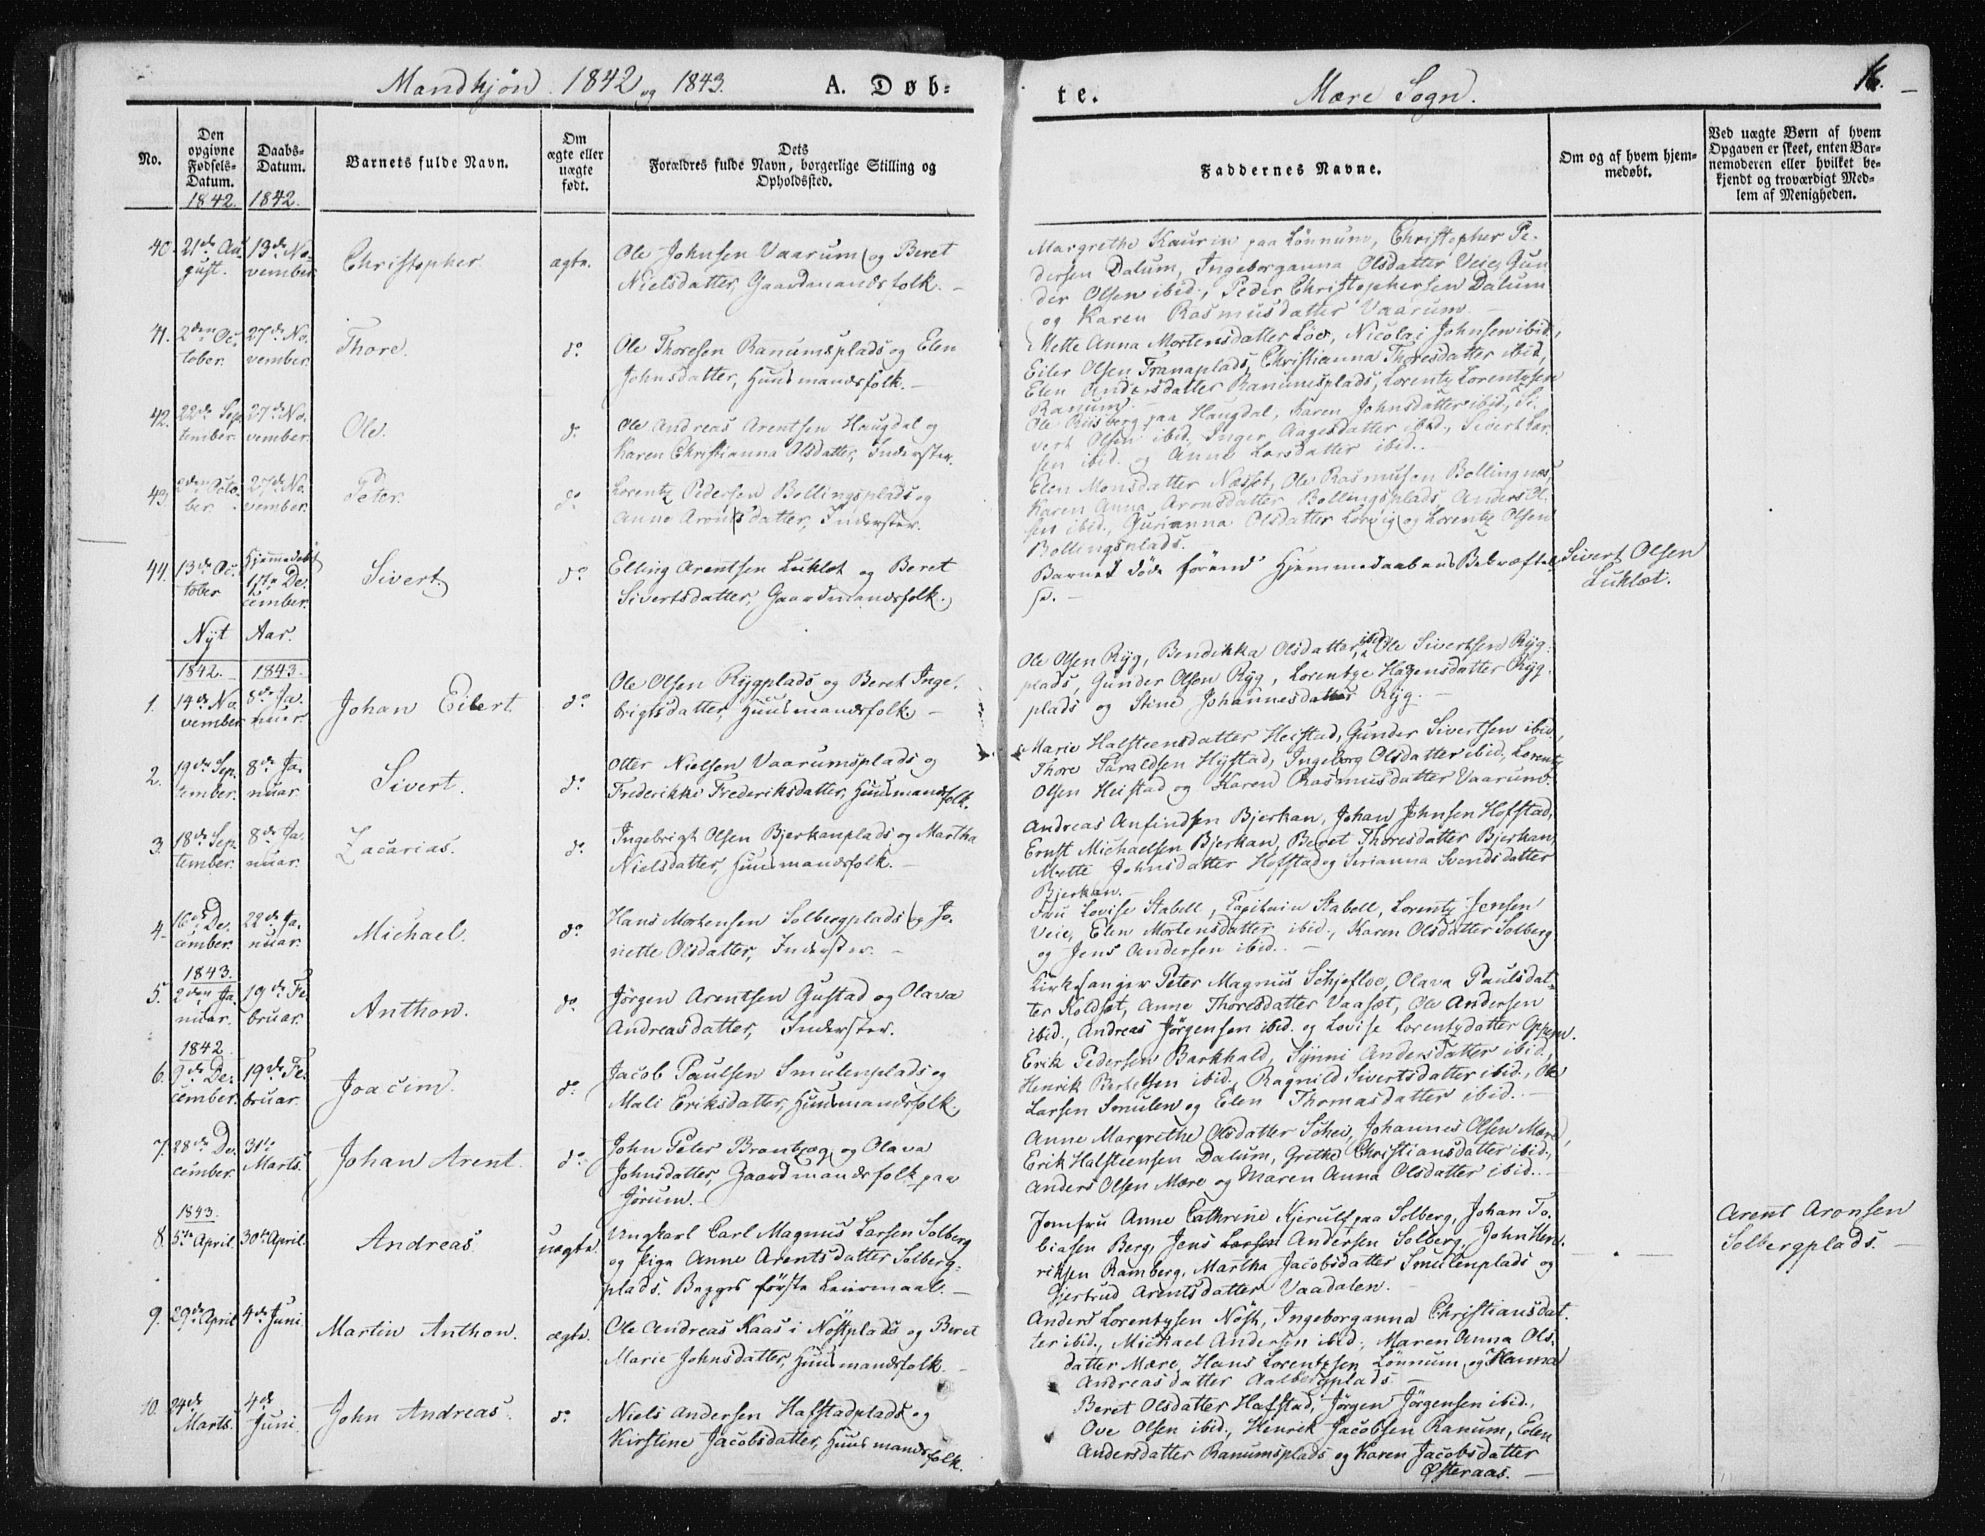 Mandkjøn. 1842 og 1843.
A. Døb-
te.
Mære Sogn.
16.
No.
Den
opgivne
Fødsels-
Datum.
1842.
Daabs-
Datum.
1842.
Barnets fulde Navn.
Om
ægte eller
uægte
født.
Dets
Forældres fulde Navn, borgerlige Stilling og
Opholdssted.
Faddernes Navne.
Om og af hvem hjem-
medøbt.
Ved uægte Børn af hvem
Opgaven er skeet, enten Bar-
nemoderen eller hvilket be-
kjendt og troværdigt Med-
lem af Menigheden.
40.
21de Au-
gust.
13de No-
vember.
Christopher.
ægte.
Ole Johnsen Vaarum og Beret
Nielsdatter, Gaardmandsfolk. -
Margrethe Kaurin paa Lønnum, Christopher Pe-
dersen Dalum, Ingeborganna Olsdatter Veie, Gun-
der Olsen ibid., Peder Christophersen Dalum
og Karen Rasmusdatter Vaarum.
41.
2den Oc-
tober.
27de No-
vember.
Thore.
do
Ole Thoresen Ranumsplads og Elen
Johnsdatter, Huusmandsfolk. -
Mette Anna Mortensdatter Løe, Nicolai Johnsen ibid,
Eiler Olsen Tranaplads, Christianna Thoresdatter ibid,
Elen Andersdatter Ranumsplads, Lorentz Lorentzsen
Ranum.
42.
22de Sep-
tember.
27de No-
vember.
Ole.
do
Ole Andreas Arentsen Haugdal og
Karen Christianna Olsdatter, Inderster.
Ole Riisberg paa Haugdal, Karen Johnsdatter ibid, Si-
vert Olsen ibid, Inger Aagesdatter ibid., Sivert Lar-
sen ibid. og Anne Larsdatter ibid.
43.
2den Octo-
ber.
27de No-
vember.
Peter.
do
Lorentz Pedersen Bollingsplads og
Anne Aronsdatter, Inderster.
Elen Monsdatter Næset, Ole Rasmusen Bollingnæs,
Karen Anna Aronsdatter Bollingsplads, Anders Ol-
sen ibid., Gurianna Olsdatter Lorvig og Lorentz Olsen
Bollingsplads.
44.
13de Oc-
tober
Hjemmedøbt
17de De-
cember.
Sivert.
do
Elling Arentsen Lukløt og Beret
Sivertsdatter, Gaardmandsfolk.
Barnet døde førend Hjemmedaabens Bekræftel-
se. -
Sivert Olsen
Lukløt.
Nyt Aar.
1842. 1843.
1.
14de No-
vember
8de Ja-
nuar.
Johan Eilert.
do
Ole Olsen Rygplads og Beret Inge-
brigtsdatter, Huusmandsfolk. -
Ole Olsen Ryg, Bendikka Olsdatter, ibid Ole Sivertsen Ryg-
plads, Gunder Olsen Ryg, Lorentze Hagensdatter Ryg-
plads og Stine Johannesdatter Ryg. -
2.
19de Sep-
tember.
8de Ja-
nuar.
Sivert.
do
Otter Nielsen Vaarumsplads og
Frederikke Frederiksdatter, Huusmandsfolk.
Marie Halsteensdatter Heistad, Gunder Sivertsen ibid,
Thore Taraldsen Hystad, Ingeborg Olsdatter ibid, Lorentz
Olsen Heistad og Karen Rasmusdatter Vaarum.
3.
18de Sep-
tember.
8de Ja-
nuar.
Zacarias.
do
Ingebrigt Olsen Bjerkanplads og Martha
Nielsdatter, Huusmandsfolk. -
Andreas Anfindsen Bjerkan, Johan Johnsen Hofstad,
Ernst Michaelsen Bjerkan, Beret Thoresdatter Bjerkan,
Mette Johnsdatter Hofstad og Serianna Svendsdatter
Bjerkan. -
4.
16de De-
cember.
22de Ja-
nuar.
Michael.
do
Hans Mortensen Solbergplads og Jo-
nette Olsdatter, Inderster. -
Fru Lovise Stabell, Capitain Stabell, Lorentz Jensen
Veie, Elen Mortensdatter ibid., Karen Olsdatter Solberg
og Jens Andersen ibid. -
1843.
5.
2den Ja-
nuar.
19de Fe-
bruar.
Anthon.
do
Jørgen Arentsen Gustad og Olava
Andreasdatter, Inderster.
Kirkesanger Peter Magnus Schjefloe, Olava Paulsdat-
ter Koldset, Anne Thoresdatter Vaaset, Ole Andersen
ibid., Andreas Jørgensen ibid. og Lovise Lorentzdatter Oppem.
1842.
6.
9de De-
cember.
19de Fe-
bruar.
Joacim.
do
Jacob Paulsen Smulenplads og
Mali Eriksdatter, Huusmandsfolk.
Erik Pedersen Barkhald, Synni Andersdatter ibid.,
Henrik Bertelsen ibid., Ragnild Sivertsdatter ibid., Ole
Larsen Smulen og Elen Thomasdatter ibid. -
7.
28de De-
cember.
31te
Marts.
Johan Arent.
do
John Peter Brontzæg og Olava
Johnsdatter, Gaardmandsfolk paa
Jørum. -
Anne Margrethe Olsdatter Schei, Johannes Olsen Mære,
Erik Halsteensen Dalum, Grethe Christiansdatter ibid.,
Anders Olsen Mære og Maren Anna Olsdatter ibid. -
1843.
8.
5te April.
30te April.
Andreas.
uægte.
Ungkarl Carl Magnus Larsen Solberg
og Pige Anne Arentsdatter Solberg-
plads. Begges første Leiermaal. -
Jomfru Anne Cathrine Kjerulf paa Solberg, Johan To-
biasen Berg, Jens Larsen Andersen Solberg, John Hen-
riksen Ramberg, Martha Jacobsdatter Smulenplads og
Gjertrud Arentsdatter Vaadalen.
Arent Aronsen
Solbergplads. -
9.
29de April
4de Juni
Martin Anthon.
ægte.
Ole Andreas Kaas i Nøstplads og Beret
Marie Johnsdatter, Huusmandsfolk. -
Anders Lorentzsen Nøst, Ingeborganna Christiansdat-
ter ibid., Michael Andersen ibid., Maren Anna Ols-
datter Mære, Hans Lorentzsen Lønnum, og Hanna
Andreasdatter Aalbergplads. -
10.
24de
Marts.
4de
Juni.
John Andreas.
do
Niels Andersen Hafstadplads og
Kirstine Jacobsdatter, Huusmandsfolk.
Beret Olsdatter Hafstad, Jørgen Jørgensen ibid.,
Ove Olsen ibid., Henrik Jacobsen Ranum, Elen
Andersdatter Ranumsplads og Karen Jacobsdatter
Østeraas. -